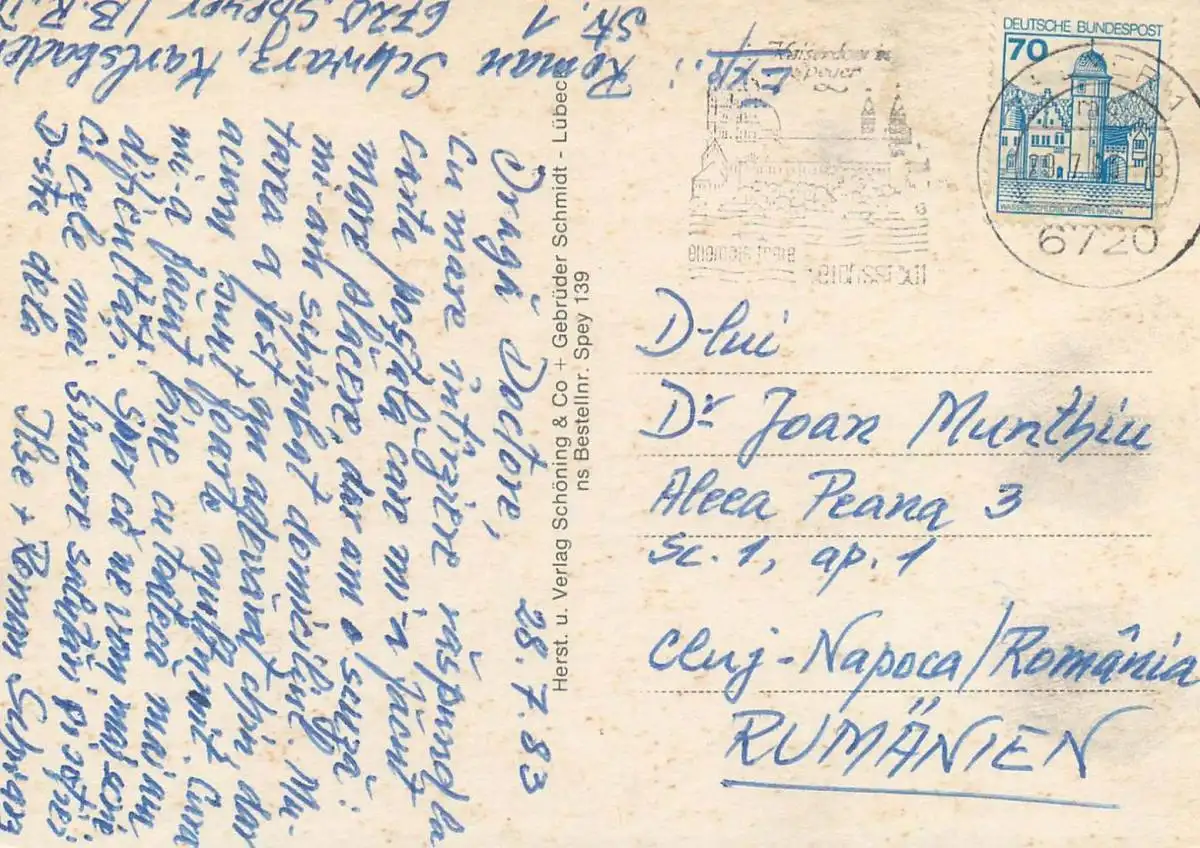 Exp.: Roman Schwarz, Karlsbader
Str. 1 6720 Speyer / B.R.D
28.7.83
Dragă Doctore,
Cu mare întîrziere răspund la
carta poștală care m-a făcut
mare plăcere, dar am o scuză:
mi-am schimbat domiciliul. Mu-
tarea a fost un adevărat chin dar
acum sunt foarte mulțumit. Cura
mi-a făcut bine cu toate că mai am
dificultăți. Sper că ne vom mai scrie
cu cele mai sincere salutări și soției
D-stre dela Ilse + Roman Schwarz
Herst. u. Verlag Schöning & Co + Gebrüder Schmidt - Lübeck
ns Bestellnr. Spey 139
Kaiserdom in
Speyer
DEUTSCHE BUNDESPOST
70
WASSERSCHLOSS MESPELBRUNN
6720
D-lui
Dr Joan Munthiu
Aleea Peana 3
Sc. 1, ap. 1
Cluj-Napoca/România
RUMÄNIEN